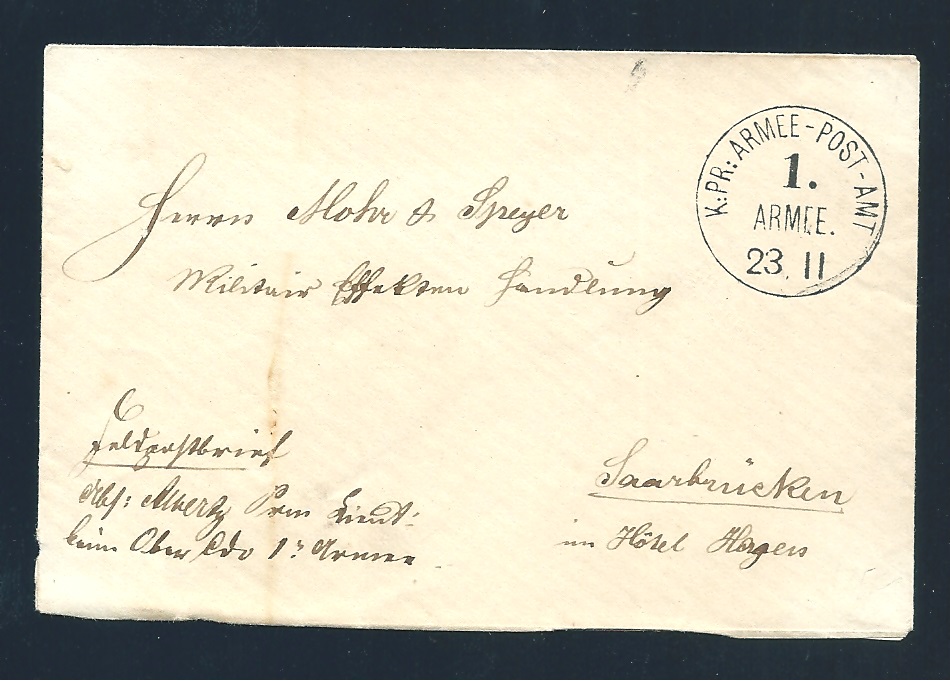 K:PR: ARMEE-POST-AMT
1.
ARMEE.
23. 11
Herrn Mohr & Speyer
Militair Effekten Handlung
Feldpostbrief
Abs: Prm Lieut:
beim Ober Cdo 1r Armee
Saarbrücken
im Hôtel Hagen